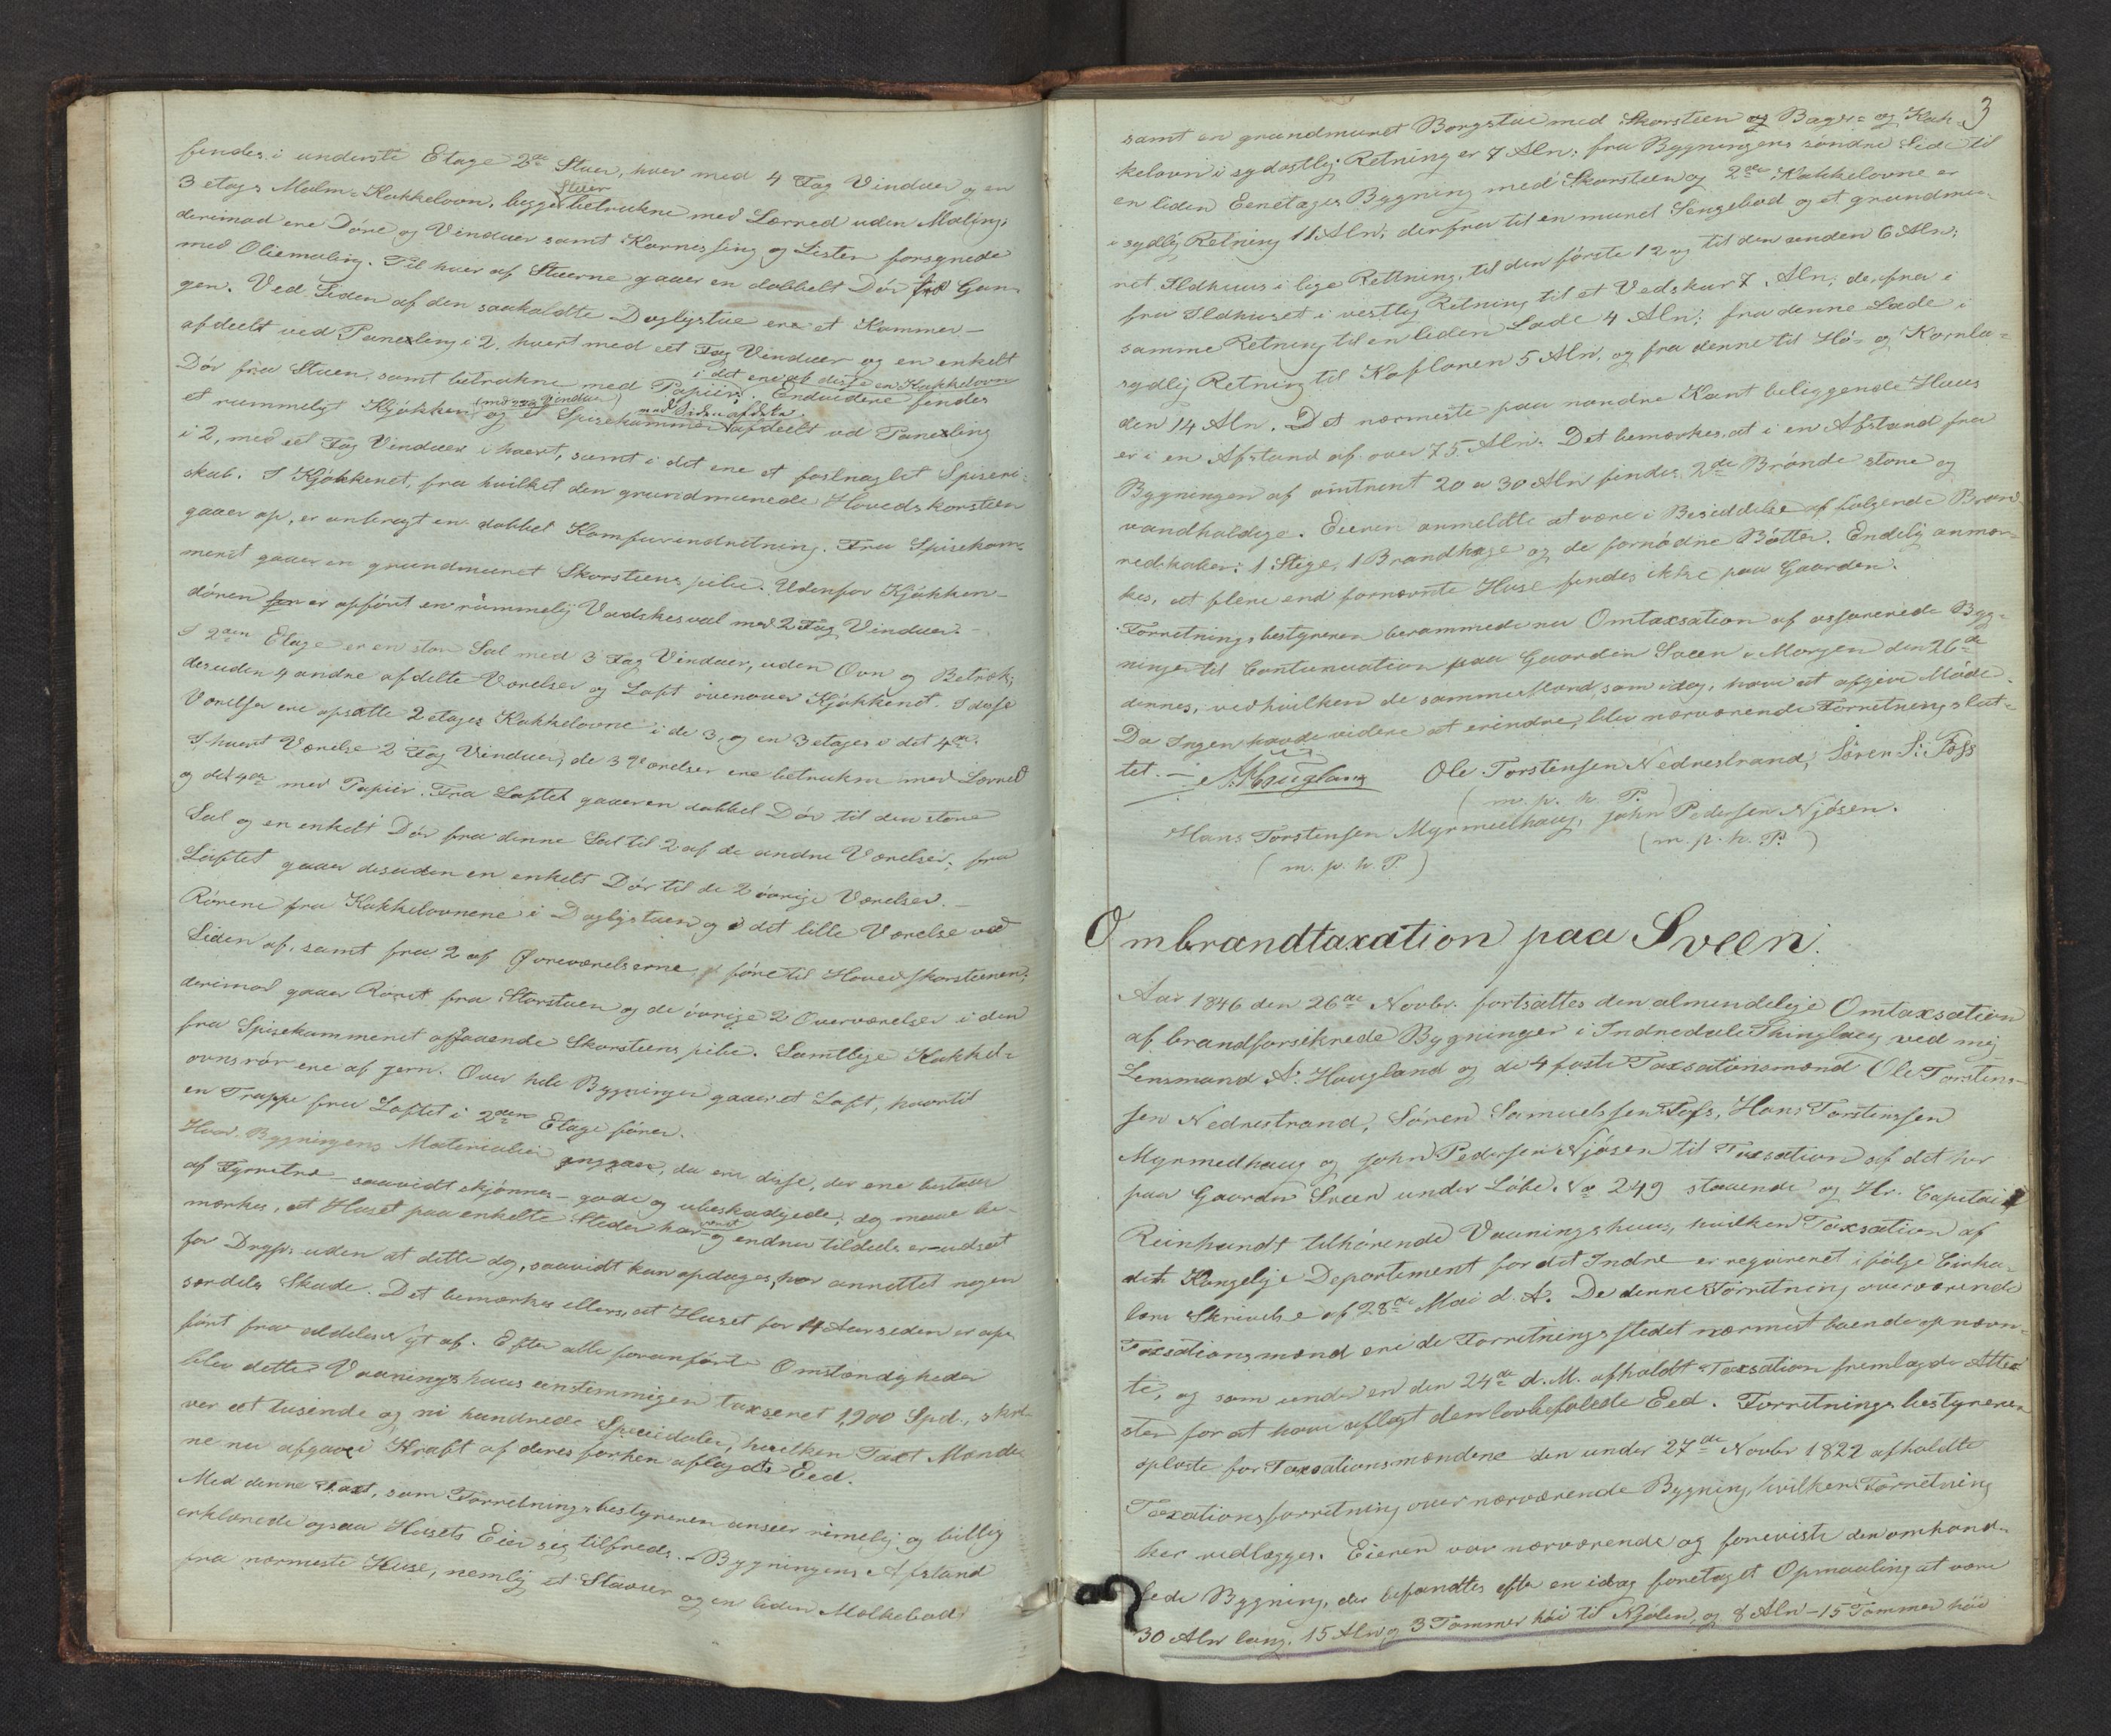 findes i underste Etage 2de Stuer, hver med 4 Fag Vinduer og en
3 etags Malm-Kakkelovn, begge Stuer betrukne med Lærred uden Maling;
derimod ere Døre og Vinduer samt Karnissing og Lister forsynede
med Oliemaling. Til hver af Stuerne gaaer en dobbelt Dør fra Gan-
gen. Ved Siden af den saakaldte Daglystue er et Kammer –
afdeelt ved Paneling i 2, hvert med eet Fag Vinduer og en enkelt
Dør fra Stuen, samt betrukne med Papiir; i det ene af disse en Kakkelovn. Endvidere findes
et rummeligt Kjøkken (med Vinduer) og et Spisekammer med Siden afdelt ved Paneling
i 2, med eet Fag Vinduer i hvert, samt i det ene et fastnaglet Spiseri-
skab. I Kjøkkenet, fra hvilket den grundmurede Hovedskorsteen
gaaer op, er anbragt en dobbel Komfurindretning. Fra Spisekam-
meret gaaer en grundmuret Skorsteenspibe. Udenfor Kjøkken-
døren er opført en rummelig Vadskesval med 2 Fag Vinduer. –
I 2den Etage er en stor Sal med 3 Fag Vinduer, uden Ovn og Betræk;
desuden 4 andre afdelte Værelser og Loft ovenover Kjøkkenet. I disse
Værelser ere opsatte 2 etages Kakkelovne i de 3, og en 3 etages i det 4de.
I hvert Værelse 2 Fag Vinduer; de 3 Værelser ere betrukne med Lærred
og det 4de med Papiir. Fra Loftet gaaer en dobbel Dør til den store
Sal og en enkelt Dør fra denne Sal til 2 af de andre Værelser; fra
Loftet gaaer desuden en enkelt Dør til de 2 øvrige Værelser. –
Rørene fra Kakkelovnene i Daglystuen og i det lille Værelse ved
Siden af, samt fra 2 af Øvreværelserne føre til Hovedskorstenen;
derimod gaaer Røret fra Storstuen og de øvrige 2 Overværelser i den
fra Spisekammeret opgaaende Skorsteenspibe. Samtlige Kakkel-
ovnsrør ere af jern. Over hele Bygningen gaaer et Loft, hvortil
en Trappe fra Loftet i 2den Etage fører.
Hvad Bygningens Materialier angaaer, da ere disse, der ene bestaaer
af Fyrretræ – saavidt skjønnes – gode og ubeskadigede, dog maae be-
mærkes, at Huset paa enkelte Steder har været og endnu tildeels er udsat
for Dryp, uden at dette dog, saavidt kan opdages, har anrettet nogen
særdeles Skade. Det bemærkes ellers, at Huset for 14 Aar siden er op-
ført fra aldeles Nyt af. Efter alle foranførte Omstændigheder
blev dette Vaaningshuus eenstemmigen taxseret 1,900 Spd., skri-
ver eet tusinde og ni hundrede Speciedaler, hvilken Taxt Mænde-
ne nu afgave i Kraft af deres forhen aflagte Eed.
Med denne Taxt, som Forretningsbestyreren anseer rimelig og billig
erklærede ogsaa Husets Eier sig tilfreds. – Bygningens Afstand
fra nærmeste Huse, nemlig et Stabur og en liden Mælkebod,
3
samt en grundmuret Borgstue med Skorsteen og Bager- og Kak-
kelovn i sydostlig Retning er 7 Aln; fra Bygningens søndre Side til
en liden Eenetages Bygning med Skorsteen og 2de Kakkelovne er
i sydlig Retning 11 Aln; derfra til en muret Sengebod og et grundmu-
ret Ildhuus i lige Rettning, til den første 12 og til den anden 6 Aln;
fra Ildhuset i vestlig Retning til et Vedskur 7 Aln; derfra i
samme Retning til en liden Lade 4 Aln; fra denne Lade i
sydlig Retning til Kofloren 5 Aln, og fra denne til Hø- og Kornla-
den 14 Aln. Det nærmeste paa nordre Kant beliggende Huus
er i en Afstand af over 75 Aln. Det bemærkes, at i en Afstand fra
Bygningen af omtrent 20 a 30 Aln findes 2de Brønde store og
vandholdige. Eieren anmeldte at være i Besiddelse af følgende Brand-
redskaber: 1 Stige, 1 Brandhage og de fornødne Bøtter. Endelig anmær-
kes, at flere end fornævnte Huse findes ikke paa Gaarden.
Forretningsbestyreren berammede nu Omtaxsation af assurerede Byg-
ninger til Contunuation paa Gaarden Sveen i Morgen den 26de
dennes, ved hvilken de samme Mænd, som idag, have at afgive Møde.
Da Ingen havde videre at erindre, blev nærværende Forretning slut-
tet. – A. Haugland Ole Torstensen Nedrestrand, Søren S: Foss
(m. p. h. P.)
Hans Torstensen Myrmelhaug, John Pedersen Njøsen.
(m. p. h. P.) (m. p. h. P.)
Ombrandtaxation paa Sveen.
Aar 1846 den 26de Novbr. fortsattes den almindelige Omtaxsation
af brandforsikrede Bygninger i Indredale Thinglaug ved mig
Lensmand A. Haugland og de 4 faste Taxsationsmænd Ole Torsten-
sen Nedrestrand, Søren Samuelssen Foss, Hans Torstenssen
Myrmelhaug og John Pedersen Njøsen til Taxsation af det her
paa Gaarden Sveen under Løbe No 249 staaende og Hr. Capitai
Reinhardt tilhørende Vaaningshuus, hvilken Taxsation af
det Kongelige Departement for det Indre er reqvireret i følge Cirku-
lære Skrivelse af 28de Mai d. A. De denne Forretning overværende
Taxsationsmænd ere de Forretningsstedet nærmest boende opnævn-
te, og som under en den 24de d. M. afholdt Taxsation fremlagde Atte-
ster for at have aflagt den lovbefalede Eed. Forretningsbestyreren
oplæste for Taxsationsmændene den under 27de Novbr 1822 afholdte
Taxationsforretning over nærværende Bygning, hvilken Forretning
her vedlægges. Eieren var nærværende og foreviste den omhand-
lede Bygning, der befandtes efter en idag foretaget Opmaaling at være
30 Aln lang, 15 Aln og 3 Tommer høi til Kjølen, og 8 Aln – 15 Tommer høi